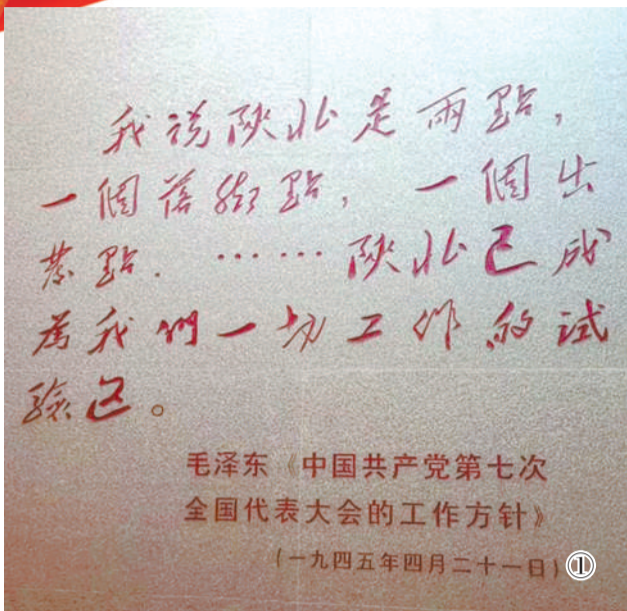 我说陝北是兩點，
一個落腳點，一個出
發點．……陝北已成
為我們一切工作的试
驗区。
毛泽东《中国共产党第七次
全国代表大会的工作方针》
(一九四五年四月二十一日) ①